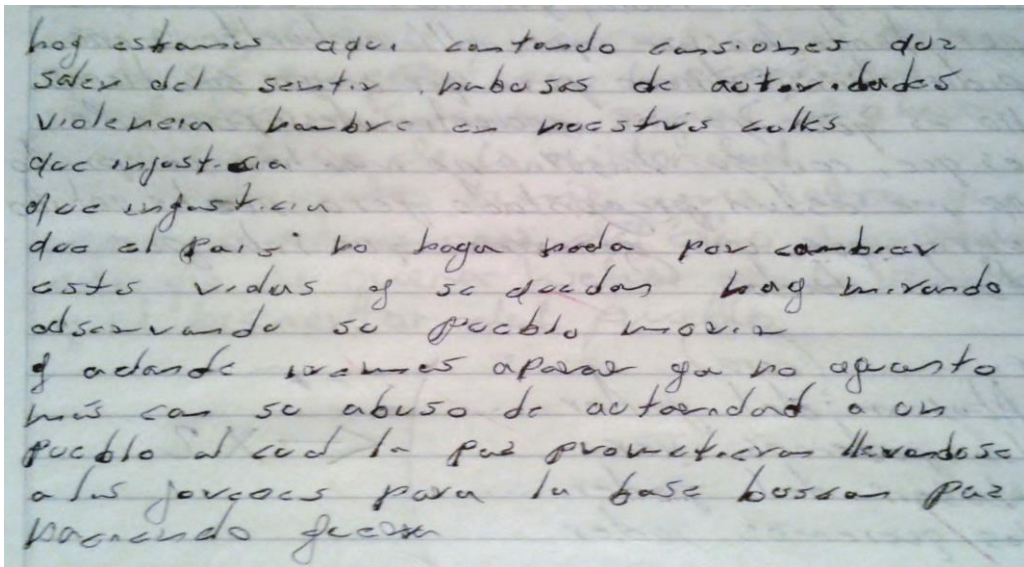 hoy estamos aqui cantando cansiones que
salen del sentir habusos de autoridades
violencia hambre en nuestras calles
que injusticia
que injusticia
que el pais no haga nada por cambiar
esta vidas y se quedan hay mirando
observando su pueblo morir
y adonde iremos aparar ya no aguanto
más con su abuso de autoridad a un
pueblo al cual la paz prometieron llevandose
a los jovenes para la base buscan paz
haciendo guerra